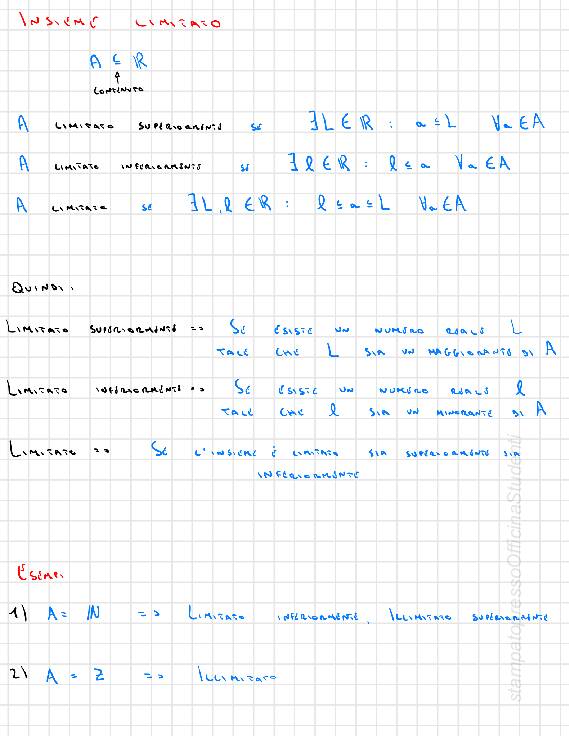 INSIEME LIMITATO
A ⊆ ℝ
↑
CONTENUTO
A LIMITATO SUPERIORMENTE SE ∃ L ∈ ℝ : a ≤ L ∀a ∈ A
A LIMITATO INFERIORMENTE SE ∃ l ∈ ℝ : l ≤ a ∀a ∈ A
A LIMITATO SE ∃ L, l ∈ ℝ : l ≤ a ≤ L ∀a ∈ A
QUINDI:
LIMITATO SUPERIORMENTE => SE ESISTE UN NUMERO REALE L
TALE CHE L SIA UN MAGGIORANTE DI A
LIMITATO INFERIORMENTE => SE ESISTE UN NUMERO REALE l
TALE CHE l SIA UN MINORANTE DI A
LIMITATO => SE L'INSIEME È LIMITATO SIA SUPERIORMENTE SIA
INFERIORMENTE
ESEMPI
1) A = ℕ => LIMITATO INFERIORMENTE, ILLIMITATO SUPERIORMENTE
2) A = Z => ILLIMITATO
stampatopressoOfficinaStudenti